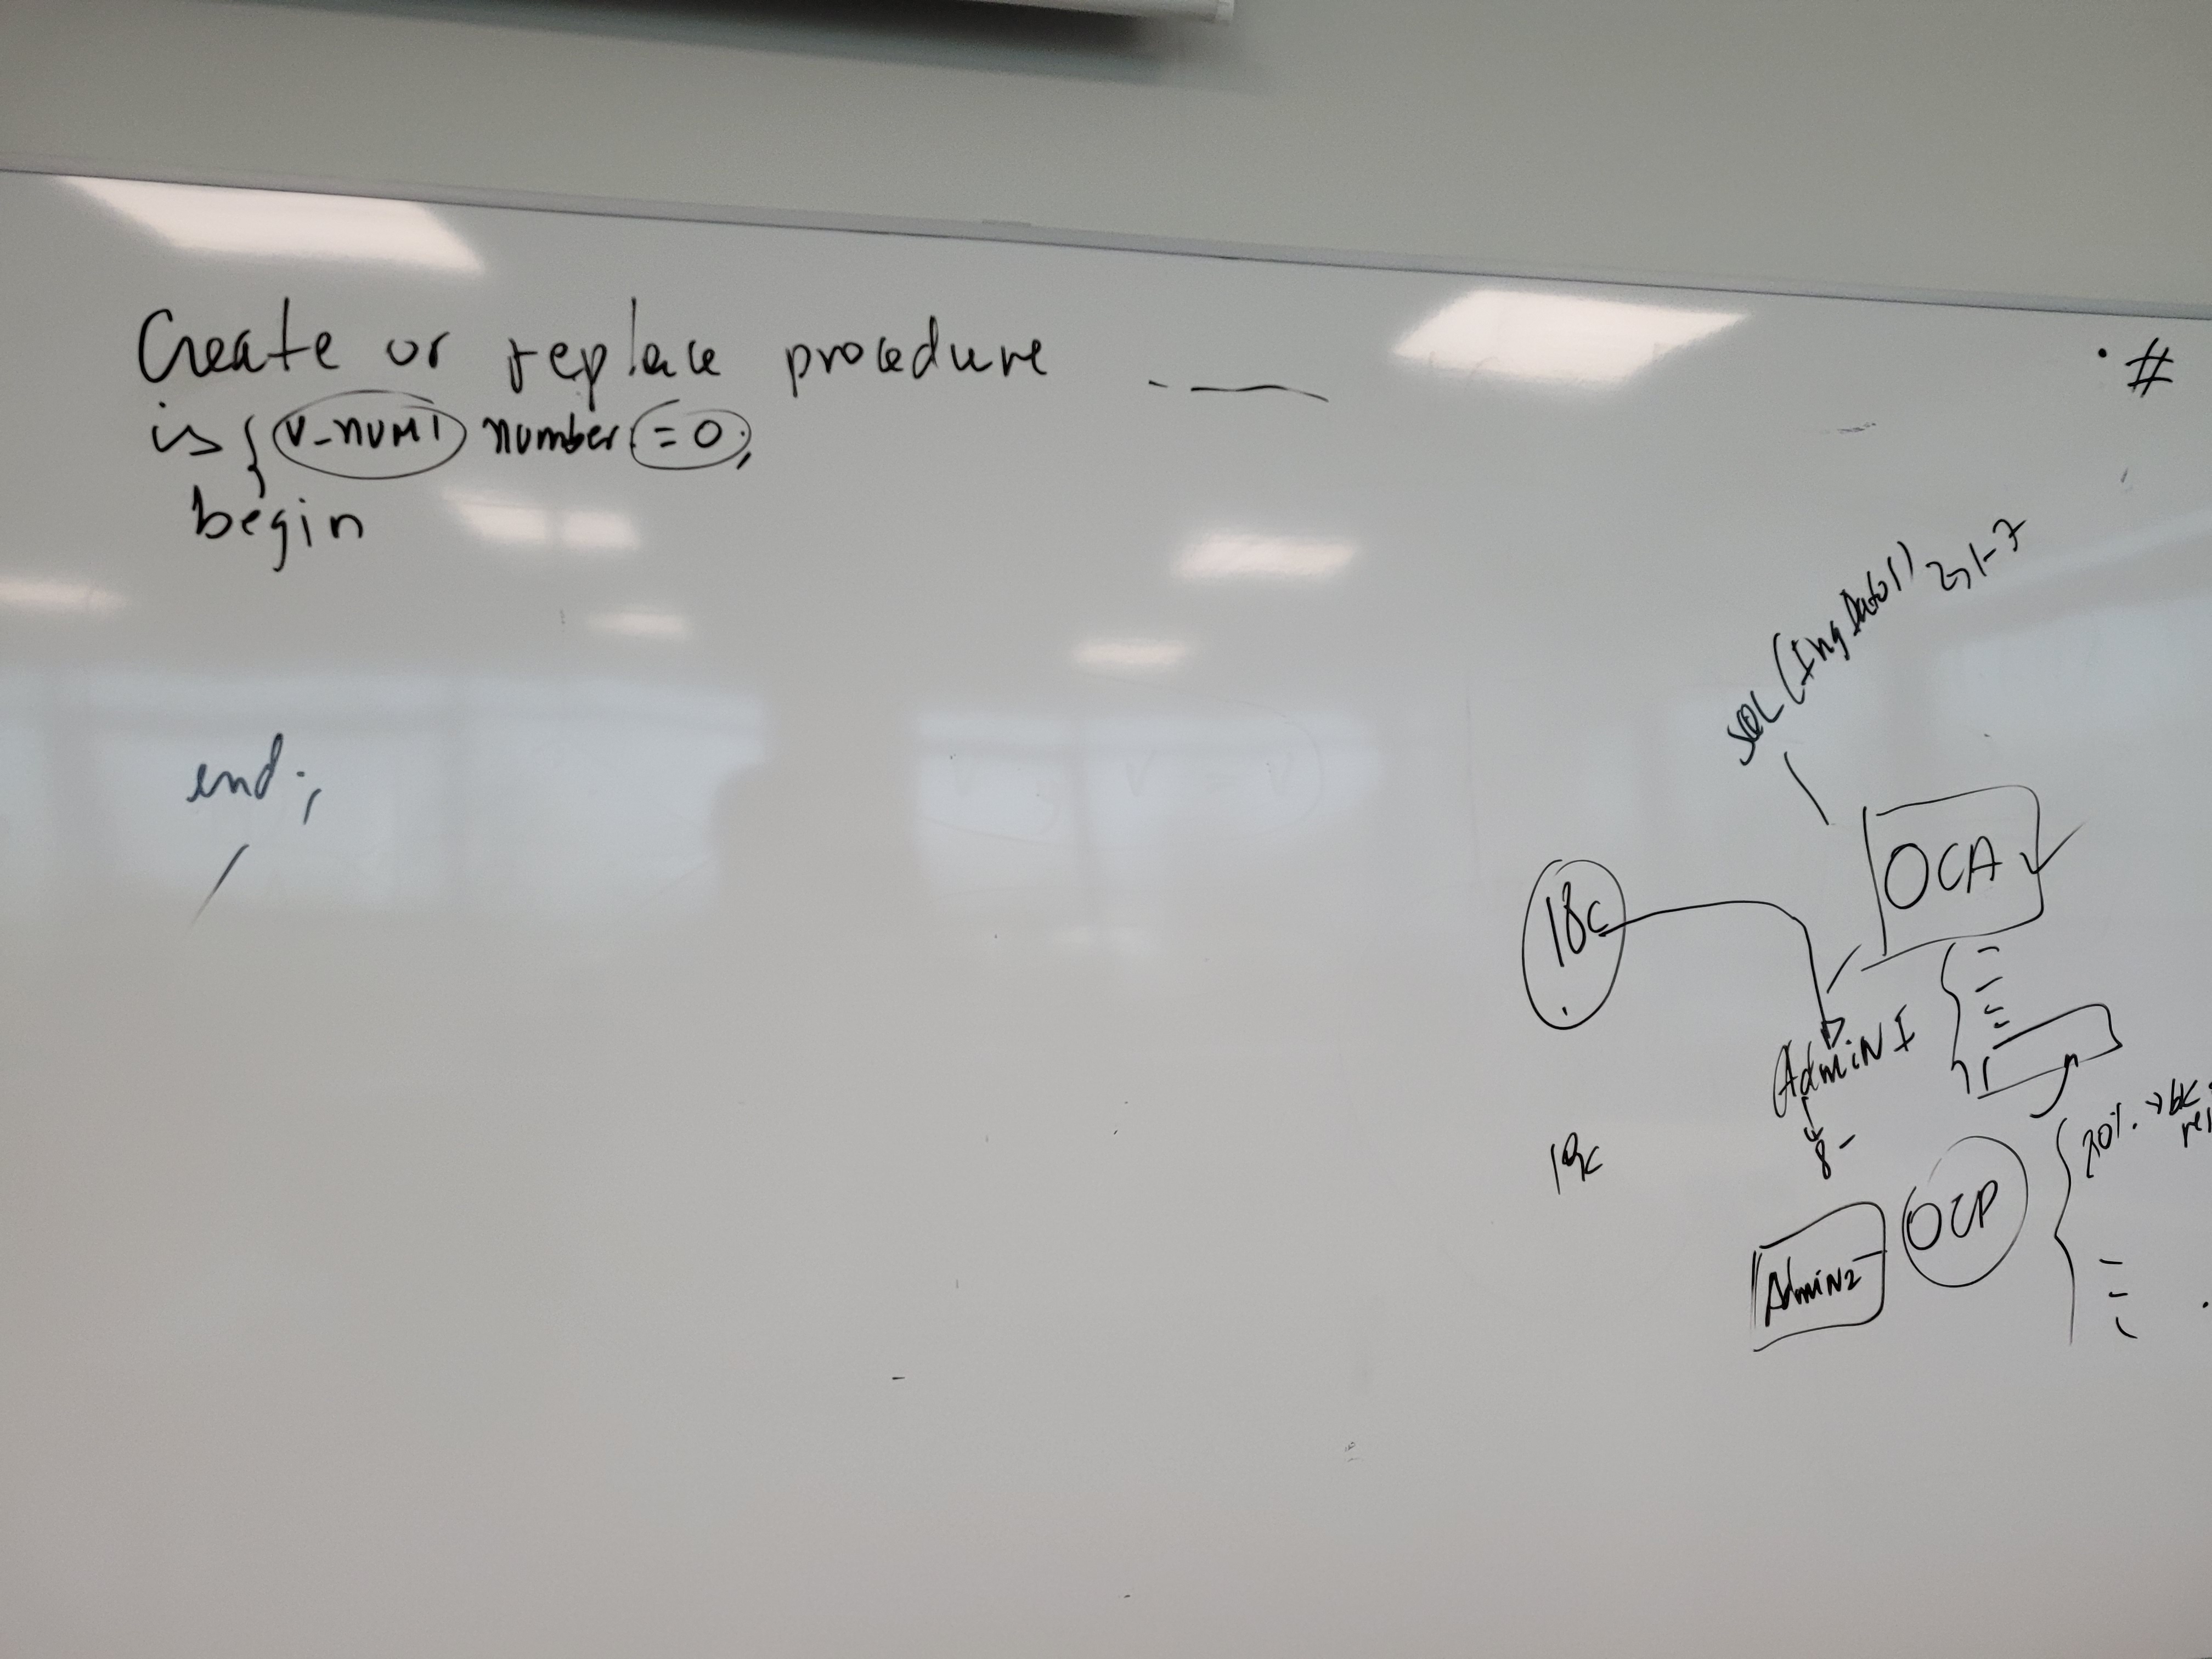 Create or replace procedure
is { v_num1 number := 0;
begin
end;
/
#
SQL (Ing Datos1) 2 1-7
OCA
18c
Admin I
8-
19c
OCP
Admin2